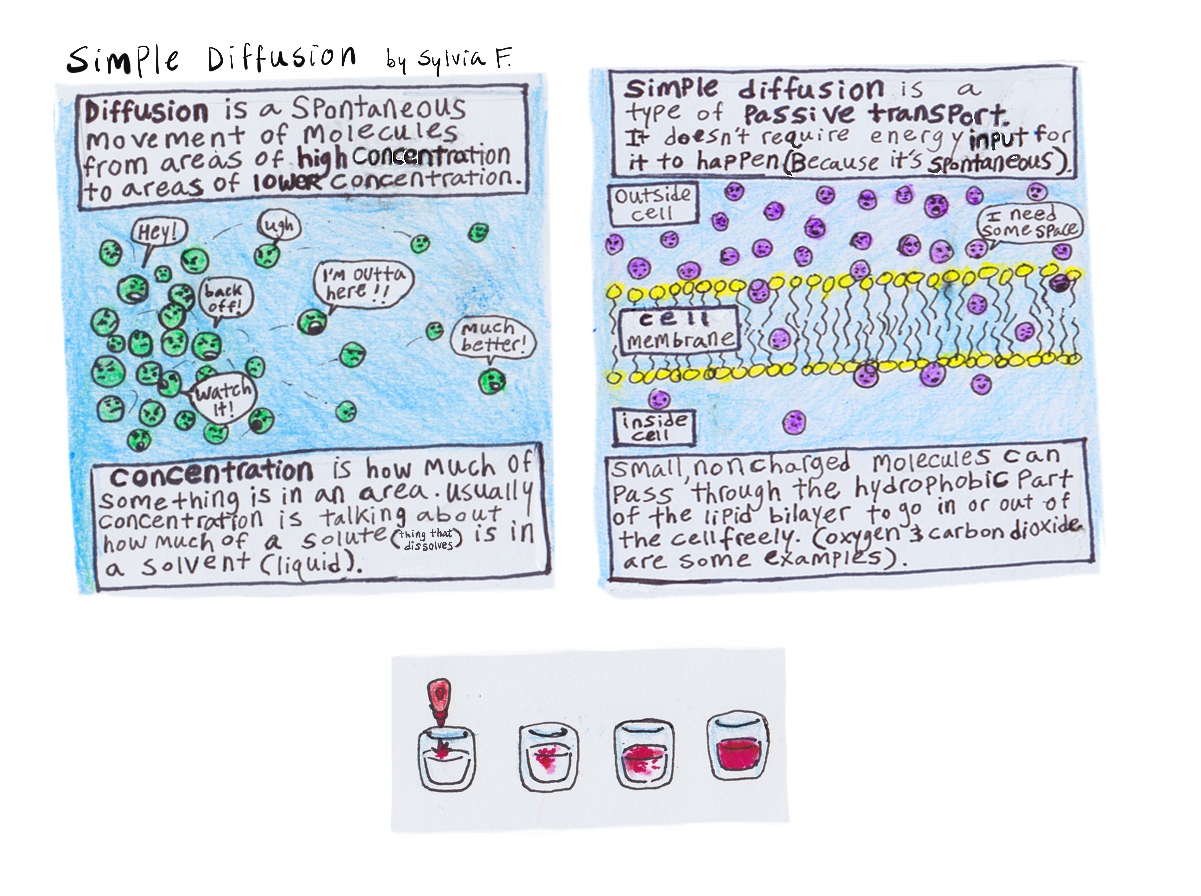 Simple Diffusion by Sylvia F.
Diffusion is a spontaneous
movement of molecules
from areas of high concentration
to areas of lower concentration.
Hey!
ugh
back
off!
I'm outta
here!!
much
better!
watch
it!
concentration is how much of
something is in an area. usually
concentration is talking about
how much of a solute (thing that
dissolves) is in
a solvent (liquid).
Simple diffusion is a
type of passive transport.
It doesn't require energy input for
it to happen (Because it's spontaneous).
outside
cell
I need
some space
cell
membrane
inside
cell
small, noncharged molecules can
pass through the hydrophobic part
of the lipid bilayer to go in or out of
the cell freely. (oxygen & carbon dioxide
are some examples).